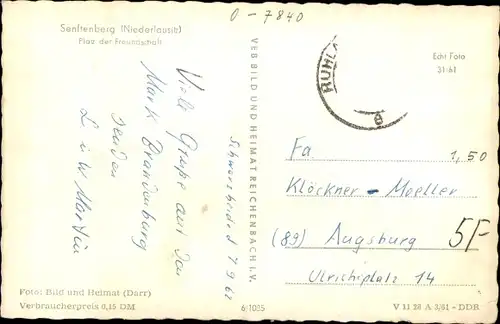 0-7840
Senftenberg (Niederlausitz)
Platz der Freundschaft
Echt Foto
31:61
RUHLA
Viele Grüße aus der
Mark Brandenburg
senden
VEB BILD UND HEIMAT REICHENBACH I. V.
Fa.
1,50
Klöckner - Moeller
(89) Augsburg
5/-
Ulrichsplatz 14
Foto: Bild und Heimat (Darr)
Verbraucherpreis 0,15 DM
6/1085
V 11 28 A 3/61 - DDR